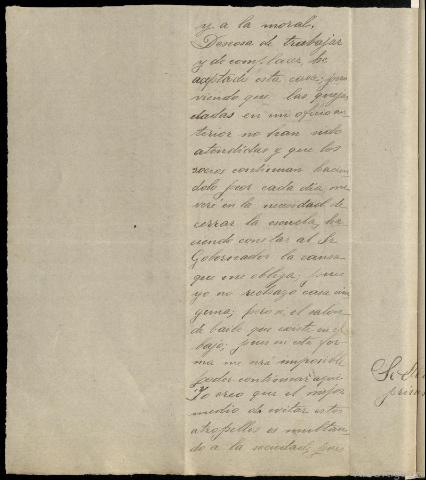 y a la moral.
Deseosa de trabajar
y de complacer, he
aceptado esta casa; pero
viendo que las quejas
dadas en mi oficio an-
terior no han sido
atendidas y que los
socios continuan hacien
dolo peor cada dia, me
veré en la necesidad de
cerrar la escuela, ha-
ciendo constar al Sr
Gobernador la causa
que me obliga; pues
yo no rechazo casa nin
guna; pero si, el salon
de baile que existe en el
bajo; pues en esta for
ma me será imposible
poder continuar aqui.
Yo creo que el mejor
medio de evitar estos
atropellos es multan-
do a la sociedad, pues